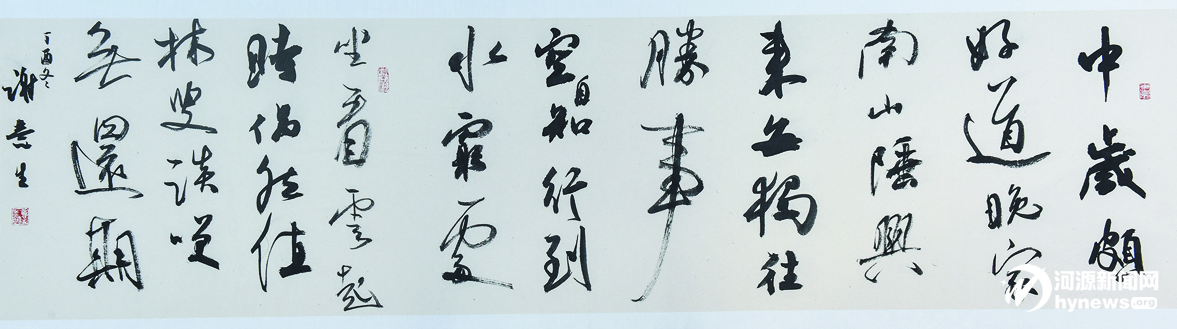 中歲頗
好道晚家
南山陲興
來每獨往
勝事
空自知行到
水窮處
坐看雲起
時偶然值
林叟談笑
無還期
丁酉冬
謝 生
河源新闻网
hynews.org